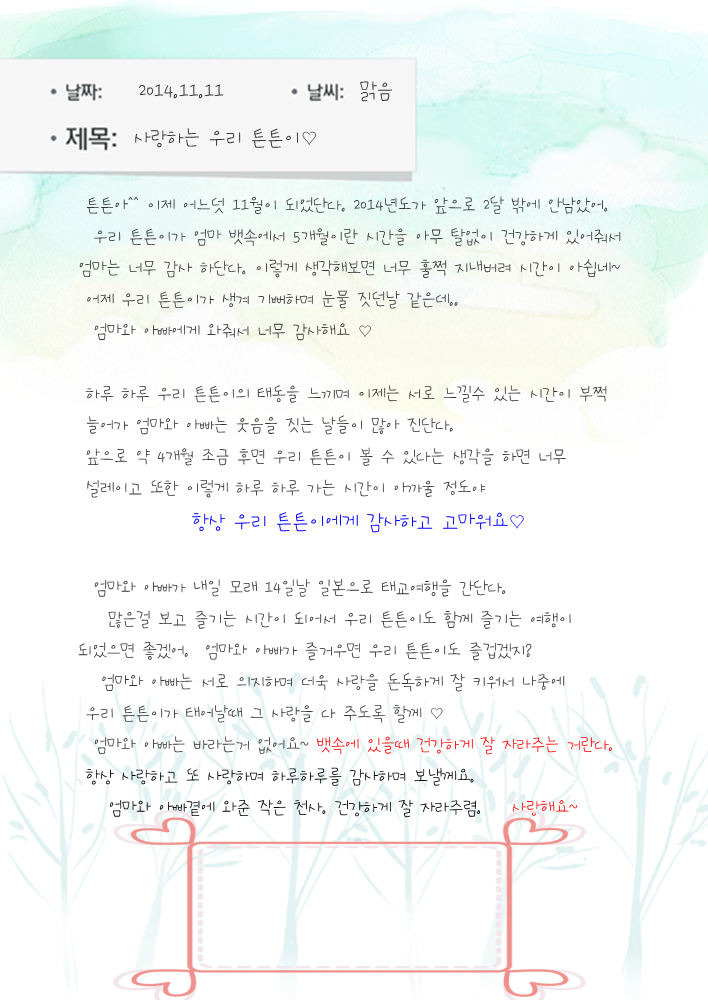 • 날짜: 2014.11.11 • 날씨: 맑음
• 제목: 사랑하는 우리 튼튼이♡
튼튼아^^ 이제 어느덧 11월이 되었단다. 2014년도가 앞으로 2달 밖에 안남았어.
우리 튼튼이가 엄마 뱃속에서 5개월이란 시간을 아무 탈없이 건강하게 있어줘서
엄마는 너무 감사 하단다. 이렇게 생각해보면 너무 훌쩍 지내버려 시간이 아쉽네~
어제 우리 튼튼이가 생겨 기뻐하며 눈물 짓던날 같은데..
엄마와 아빠에게 와줘서 너무 감사해요 ♡
하루 하루 우리 튼튼이의 태동을 느끼며 이제는 서로 느낄수 있는 시간이 부쩍
늘어가 엄마와 아빠는 웃음을 짓는 날들이 많아 진단다.
앞으로 약 4개월 조금 후면 우리 튼튼이 볼 수 있다는 생각을 하면 너무
설레이고 또한 이렇게 하루 하루 가는 시간이 아까울 정도야
항상 우리 튼튼이에게 감사하고 고마워요♡
엄마와 아빠가 내일 모래 14일날 일본으로 태교여행을 간단다.
많은걸 보고 즐기는 시간이 되어서 우리 튼튼이도 함께 즐기는 여행이
되었으면 좋겠어. 엄마와 아빠가 즐거우면 우리 튼튼이도 즐겁겠지?
엄마와 아빠는 서로 의지하며 더욱 사랑을 돈독하게 잘 키워서 나중에
우리 튼튼이가 태어날때 그 사랑을 다 주도록 할게 ♡
엄마와 아빠는 바라는거 없어요~ 뱃속에 있을때 건강하게 잘 자라주는 거란다.
항상 사랑하고 또 사랑하며 하루하루를 감사하며 보낼게요.
엄마와 아빠곁에 와준 작은 천사. 건강하게 잘 자라주렴. 사랑해요~